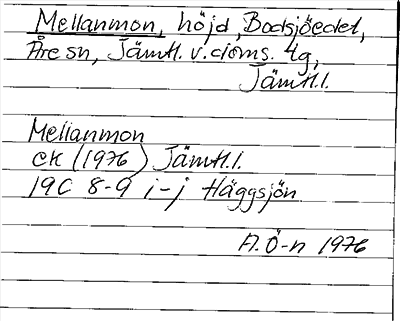 Mellanmon, höjd, Bodsjöedet,
Åre sn, Jämtl. v. doms. tg,
Jämtl.l.
Mellanmon
EK (1976) Jämtl.l.
19C 8-9 i-j Häggsjön
A.Ö-n 1976